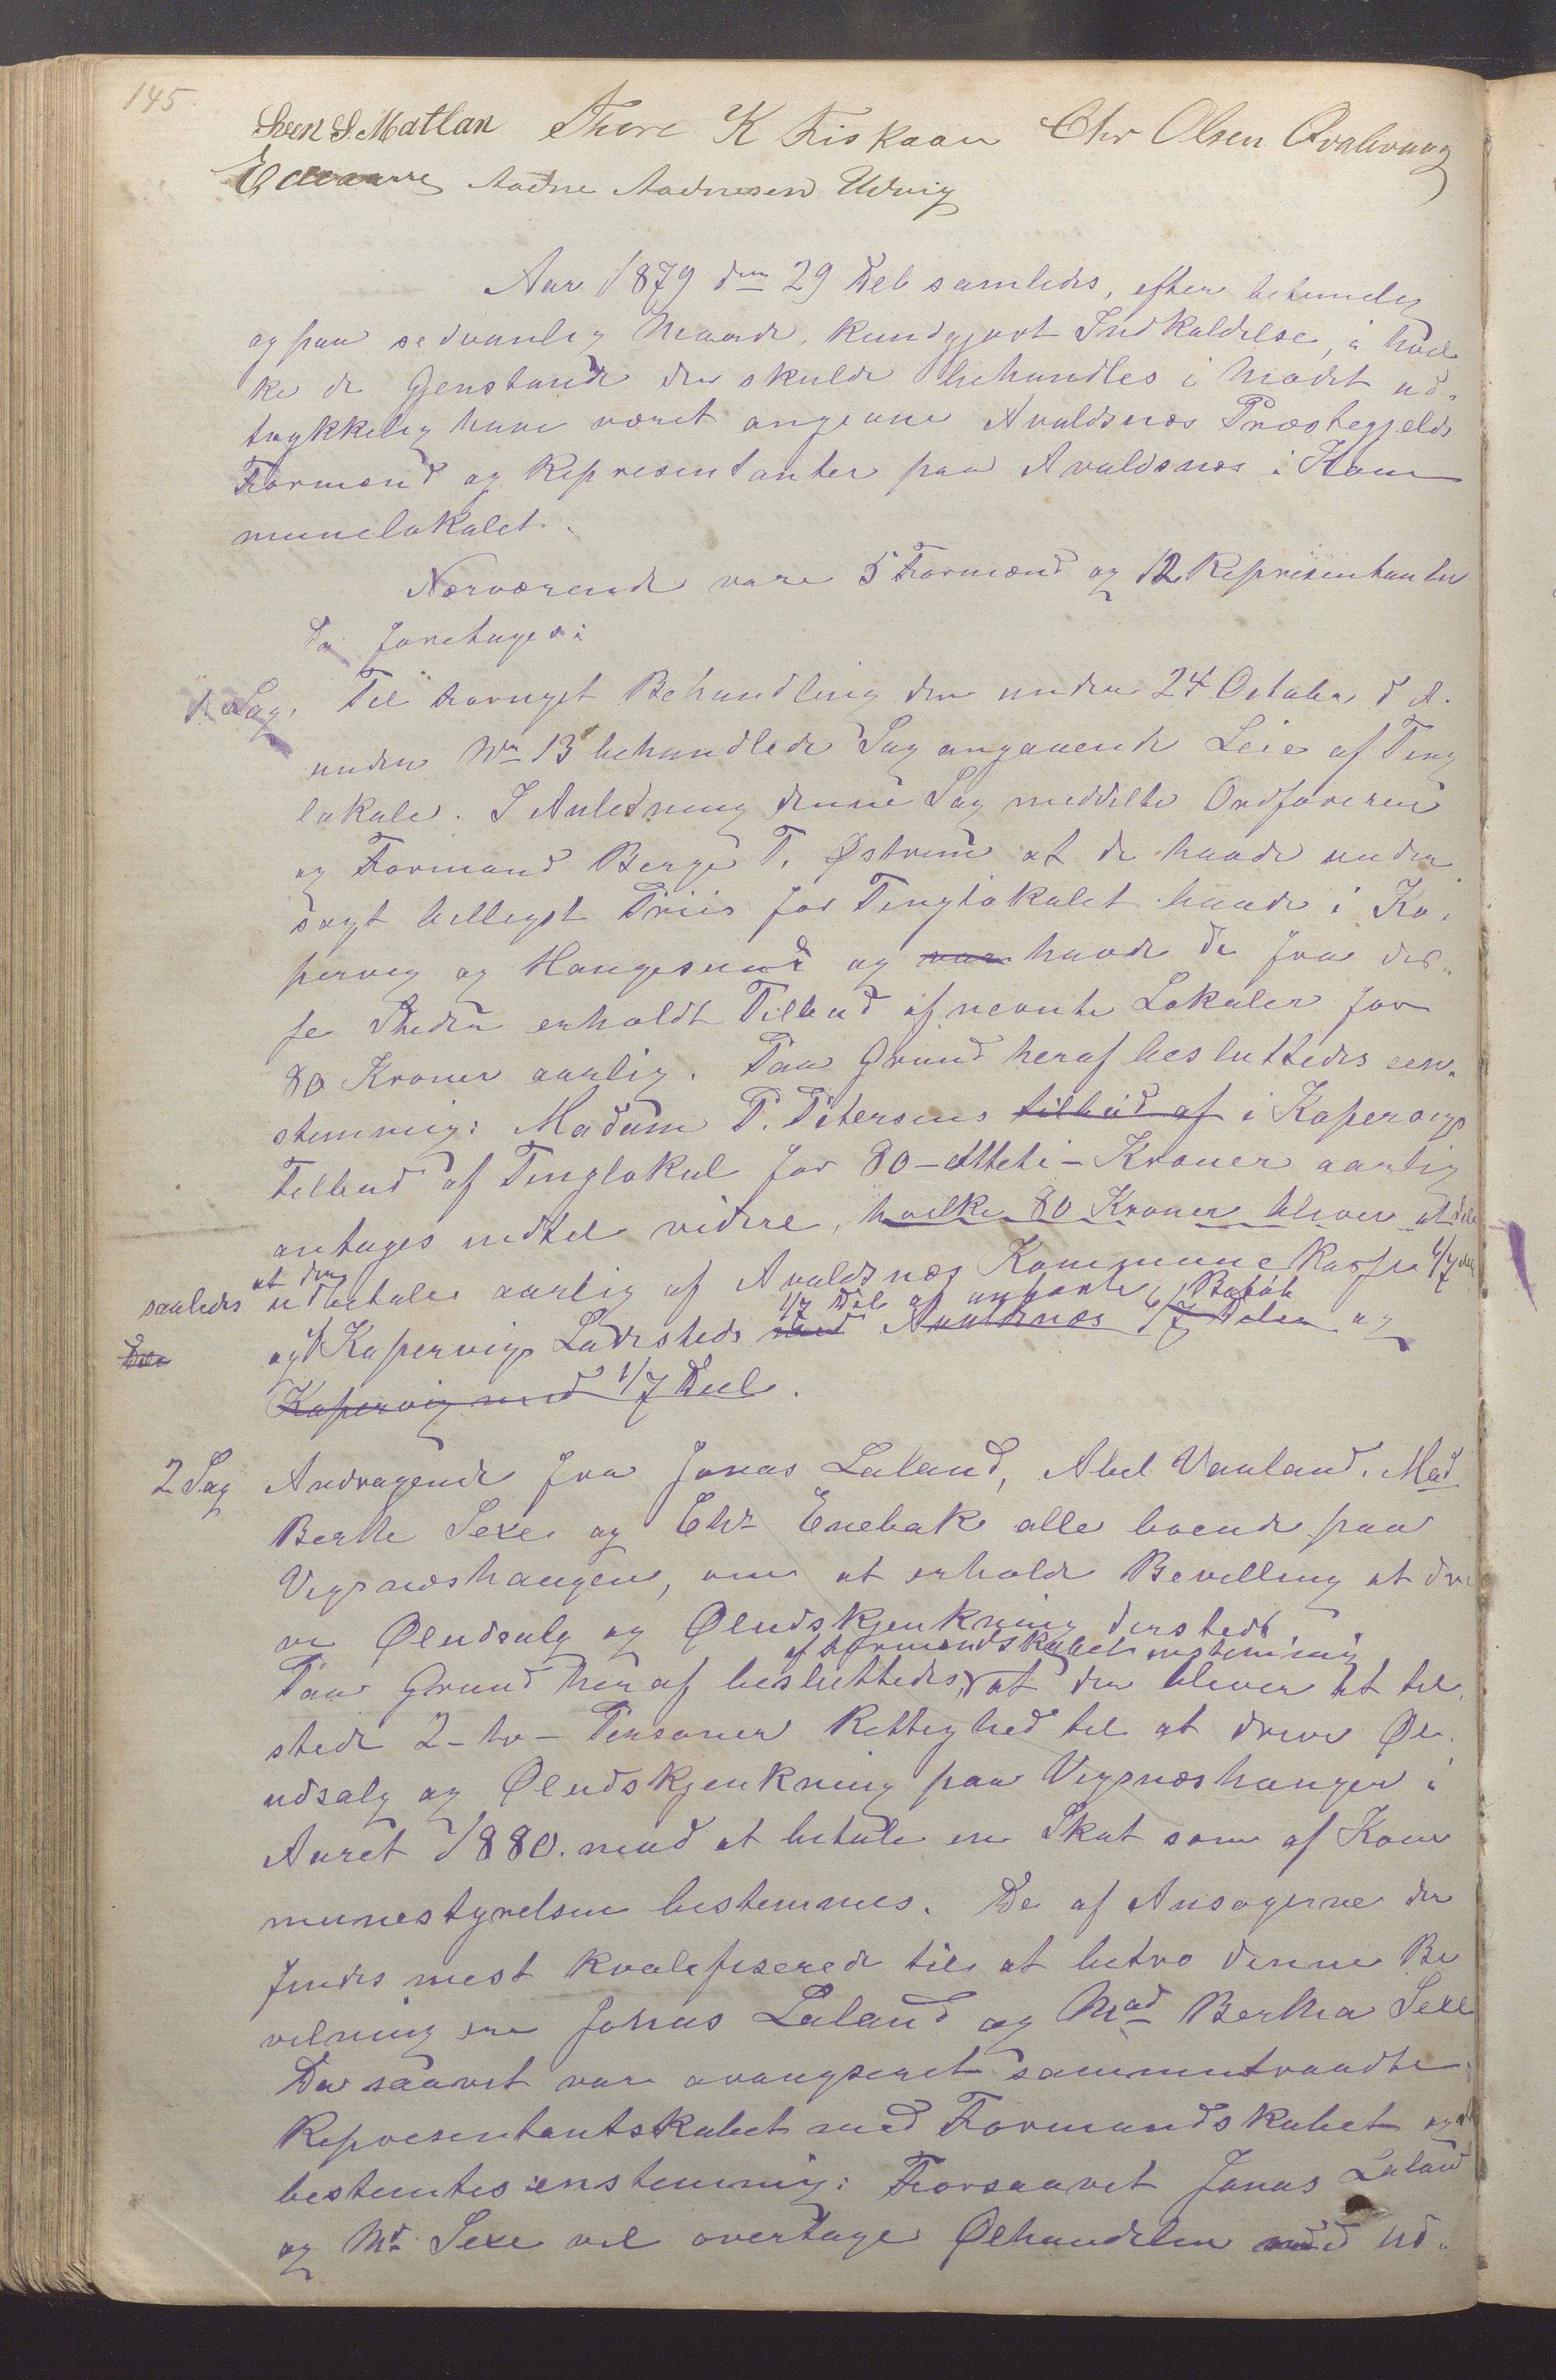 145.
Sven S Matlan Thore K Fiskaaen Chr Olsen Qvalevaag
Aadne Aadnesen Udvig
Aar 1879 den 29 Deb samledes, efter betimelig
og paa sedvanlig Maade, kundgjort Indkaldelse, i hvil
ke de Gjenstande der skulde behandles i Mødet ud-
trykkelig have været angivne Avaldsnes Præstegjelds
Formend og Representanter paa Avaldsnes i Kom
munelokalet.
Nærværende vare 5 Formend og 12 Representanter
Da foretages:
1. Sag. Til fornyet Behandling den under 24 Octobr d. A.
under No 13 behandlede Sag angaaende Leie af Ting
lokale. I Anledning denne Sag meddelte Ordføreren
og Formand Berge T. Østrem at de havde under
søgt billigst Priis for Tinglokalet baade i Ko.
pervig og Haugesund og var havde de fra dis-
se Steder erholdt Tilbud af nevnte Lokaler for
80 Kroner aarlig. Paa Grund heraf besluttedes een-
stemmig: Madam P. Petersens tilbud af i Kopervigs
Tilbud af Tinglokal for 80 - Otteti - Kroner aarlig
antages indtil videre, hvilke 80 Kroner bliver at dele
saaledes at der udbetales aarlig af Avaldsnes Kommunekasse 6/7 del
1/7 Del af anførte Beløb
Dele og af Kopervigs Ladesteds med Avaldsnes 6/7 Deler og
Kopervig med 1/7 Deel.
2 Sag Andragende fra Jonas Laland, Abel Vaaland, Mad
Berthe Sexe og Chr Enebak alle boende paa
Vigsnæshaugen, om at erholde Bevilling at dri
ve Øludsalg og Øludskjenkning dersteds.
af Formandskabet enstemmig
Paa Grund heraf besluttedes, at der bliver at til-
stede 2 - to - Personer Rettighed til at drive Øl-
udsalg og Øludskjenkning paa Vigsnæshaugen i
Aaret 1880. mod at betale en Skat som af Kom
munestyrelsen bestemmes. De af Ansøgerne der
findes mest kvalefiserede til at betro denne Be
vilning ere Jonas Laland og Mad Bertha Sexe
Da saavet var avangseret sammentraadte
Representantskabet med Formandskabet og
bestemtes enstemmig: Forsaavet Jonas Laland
og Md. Sexe vil overtage Ølhandelen med Ud-